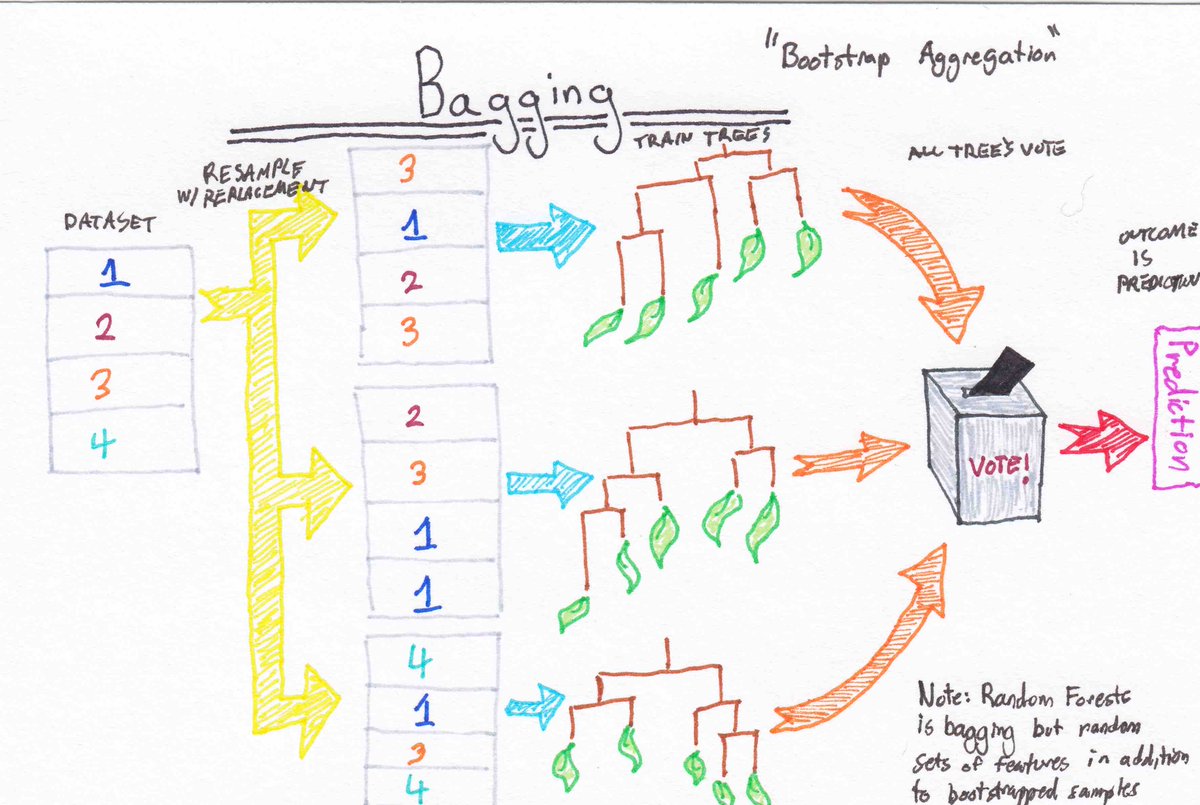 Bagging
"Bootstrap Aggregation"
DATASET
1
2
3
4
RESAMPLE
W/ REPLACEMENT
3
1
2
3
2
3
1
1
4
1
3
4
TRAIN TREES
ALL TREE'S VOTE
VOTE!
OUTCOME
IS
PREDICTION
Prediction
Note: Random Forests
is bagging but random
sets of features in addition
to bootstrapped samples